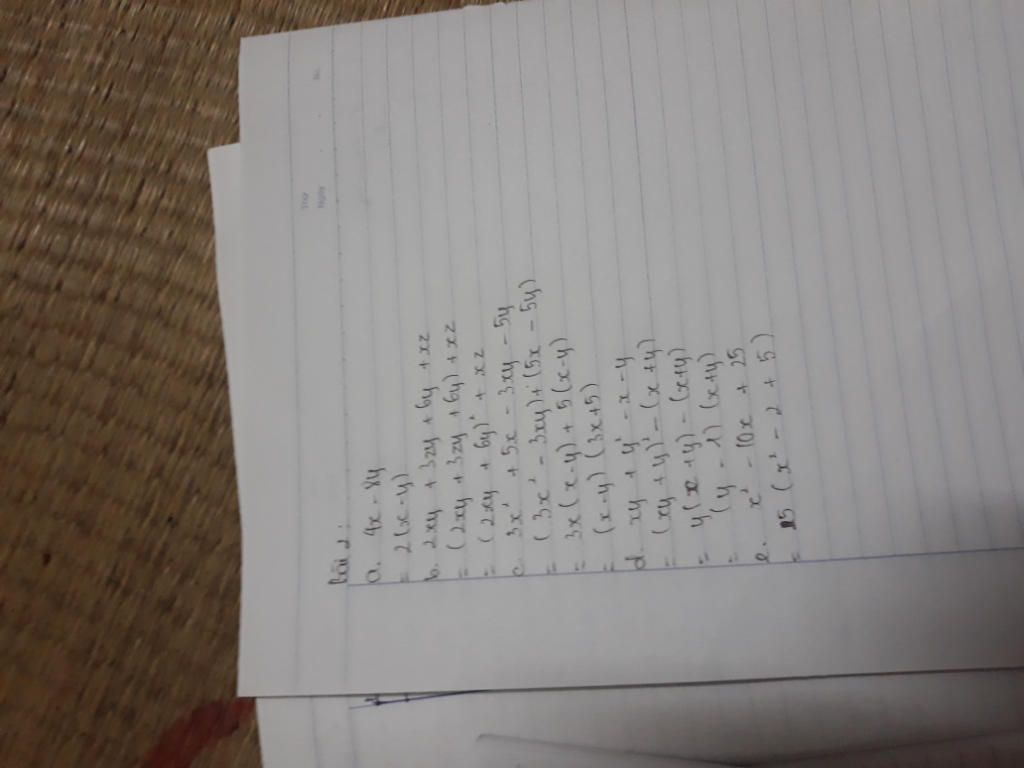 Thứ
Ngày
No.
Bài 2:
a. 4x - 8y
= 2(x-y)
b. 2xy + 3zy + 6y + xz
= (2xy + 3zy + 6y) + xz
= (2xy + 6y)² + xz
c. 3x² + 5x - 3xy - 5y
= (3x² - 3xy) + (5x - 5y)
= 3x(x-y) + 5(x-y)
= (x-y) (3x+5)
d. xy + y² - x - y
= (xy + y)² - (x+y)
= y(x+y) - (x+y)
= (y - 1) (x+y)
e. x² - 10x + 25
= 5 (x² - 2 + 5)